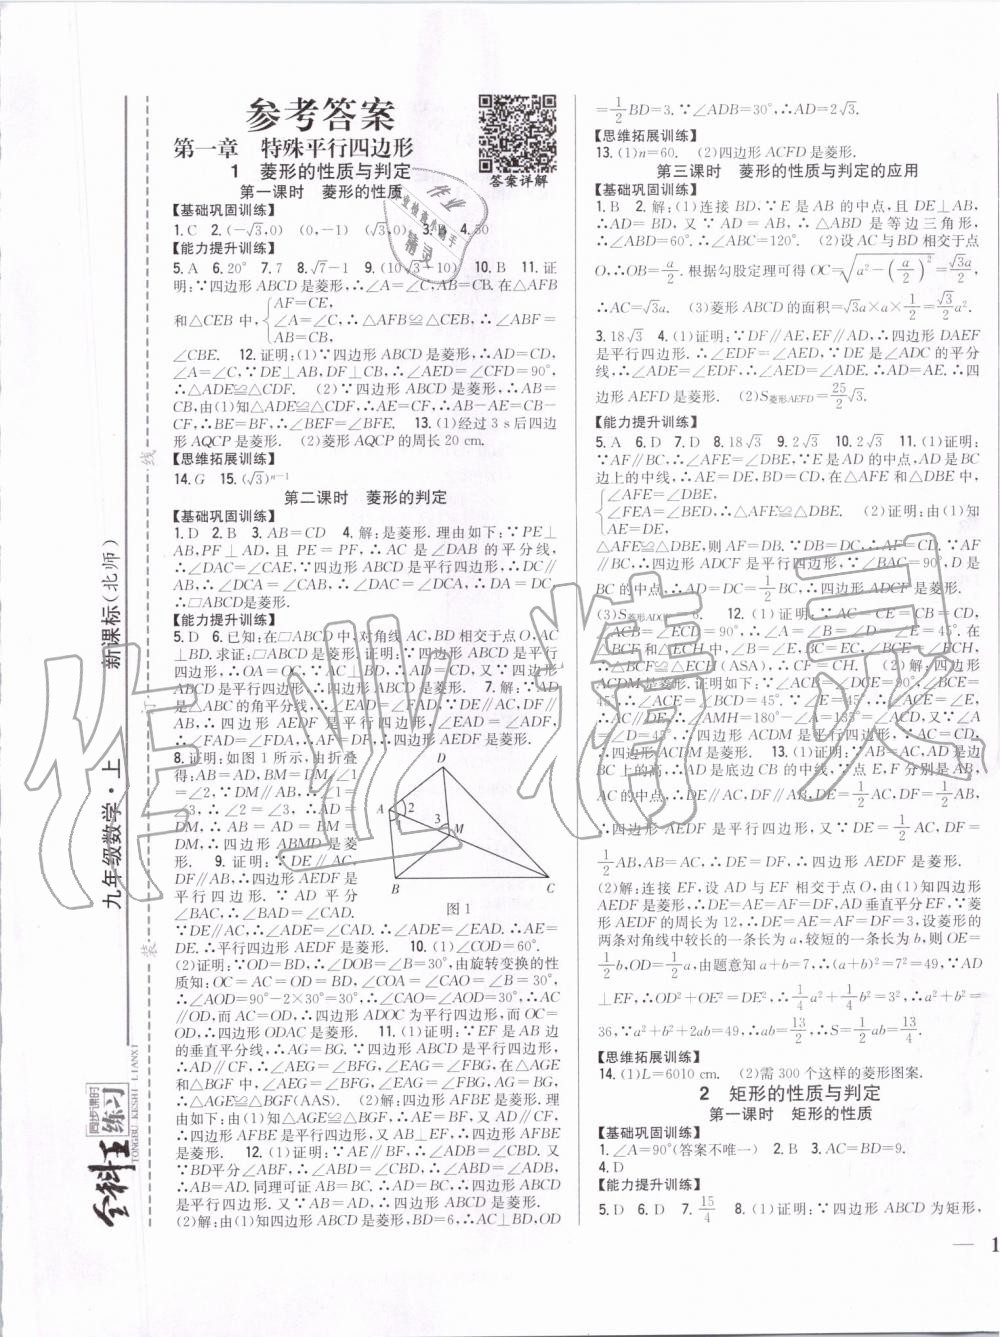 参考答案
第一章 特殊平行四边形
1 菱形的性质与判定
第一课时 菱形的性质
答案详解
【基础巩固训练】
1.C 2.(-√3,0) (0,-1) (√3,0)
【能力提升训练】
5.A 6.20° 7.7 8.√7-1 9.(10√3-10) 10.B 11.证
明:∵四边形ABCD是菱形,∴∠A=∠C,AB=CB.在△AFB
和△CEB中,{AF=CE,
∠A=∠C,∴△AFB≌△CEB,∴∠ABF=
AB=CB,
∠CBE. 12.证明:(1)∵四边形ABCD是菱形,∴AD=CD,
∠A=∠C,∵DE⊥AB,DF⊥CB,∴∠AED=∠CFD=90°,
∴△ADE≌△CDF. (2)∵四边形ABCD是菱形,∴AB=
CB,由(1)知△ADE≌△CDF,∴AE=CF,∴AB-AE=CB-
CF,∴BE=BF,∴∠BEF=∠BFE. 13.(1)经过3 s后四边
形AQCP是菱形. (2)菱形AQCP的周长20 cm.
【思维拓展训练】
14.G 15.(√3)ⁿ⁻¹
第二课时 菱形的判定
【基础巩固训练】
1.D 2.B 3.AB=CD 4.解:是菱形.理由如下:∵PE⊥
AB,PF⊥AD,且PE=PF,∴AC是∠DAB的平分线,
∴∠DAC=∠CAE.∵四边形ABCD是平行四边形,∴DC∥
AB,∴∠DCA=∠CAB,∴∠DAC=∠DCA,∴DA=DC,
∴□ABCD是菱形.
【能力提升训练】
5.D 6.已知:在□ABCD中,对角线AC,BD相交于点O,AC
⊥BD.求证:□ABCD是菱形.证明:∵四边形ABCD是平行
四边形,∴OA=OC.∵AC⊥BD,∴AD=CD,又∵四边形
ABCD是平行四边形,∴四边形ABCD是菱形. 7.解:∵AD
是△ABC的角平分线,∴∠EAD=∠FAD,∵DE∥AC,DF∥
AB,∴四边形AEDF是平行四边形,∠EAD=∠ADF,
∴∠FAD=∠FDA,∴AF=DF,∴四边形AEDF是菱形.
8.证明:如图1所示,由折叠
得:AB=AD,BM=DM,∠1=
∠2.∵DM∥AB,∴∠1=
∠3,∴∠2=∠3,∴AD=
DM,∴AB=AD=BM=
DM,∴四边形ABMD是菱
形. 9.证明:∵DE∥AC,
DF∥AB,∴四边形AEDF是
平行四边形.∵AD平分
∠BAC,∴∠BAD=∠DAC.
∵DE∥AC,∴∠ADE=∠CAD.∴∠ADE=∠EAD.∴AE=
DE.∴平行四边形AEDF是菱形. 10.(1)∠COD=60°.
(2)证明:∵OD=BD,∴∠DOB=∠B=30°,由旋转变换的性
质知:OC=AC=OD=BD,∠COA=∠CAO=∠B=30°,
∴∠AOD=90°-2×30°=30°,∴∠CAO=∠AOD=30°,∴AC
∥OD,而AC=OD,∴四边形ADOC为平行四边形,而OC=
OD,∴四边形ODAC是菱形. 11.(1)证明:∵EF是AB边
的垂直平分线,∴AG=BG.∵四边形ABCD是平行四边形,
∴AD∥CF,∴∠AEG=∠BFG,∠EAG=∠FBG,在△AGE
和△BGF中,∠AEG=∠BFG,∠EAG=∠FBG,AG=BG,
∴△AGE≌△BGF(AAS). (2)解:四边形AFBE是菱形.理
由如下:由(1)知△AGE≌△BGF,∴AE=BF,又AD∥CF,
∴四边形AFBE是平行四边形,又AB⊥EF,∴四边形AFBE
是菱形. 12.(1)证明:∵AE∥BF,∴∠ADB=∠CBD.又
∵BD平分∠ABF,∴∠ABD=∠CBD,∴∠ABD=∠ADB,
∴AB=AD.同理可证AB=BC.∴AD=BC,∴四边形ABCD
是平行四边形.又∵AB=AD,∴四边形ABCD是菱形.
(2)解:由(1)知四边形ABCD是菱形,BD=6,∴AC⊥BD,OD
D
A
2
1
3
M
B
C
图1
=1/2BD=3.∵∠ADB=30°,∴AD=2√3.
【思维拓展训练】
13.(1)n=60. (2)四边形ACFD是菱形.
第三课时 菱形的性质与判定的应用
【基础巩固训练】
1.B 2.解:(1)连接BD,∵E是AB的中点,且DE⊥AB,
∴AD=BD,又∵AD=AB,∴△ABD是等边三角形,
∴∠ABD=60°.∴∠ABC=120°. (2)设AC与BD相交于点
O,∴OB=a/2.根据勾股定理可得OC=√(a²-(a/2)²)=√3a/2,
∴AC=√3a. (3)菱形ABCD的面积=√3a×a×1/2=√3/2a².
3.18√3 4.(1)证明:∵DF∥AE,EF∥AD,∴四边形DAEF
是平行四边形.∴∠EDF=∠AED,∵DE是∠ADC的平分
线,∴∠ADE=∠EDF,∴∠AED=∠ADE.∴AD=AE.∴四
边形AEFD是菱形. (2)S菱形AEFD=25/2√3.
【能力提升训练】
5.A 6.D 7.D 8.18√3 9.2√3 10.2√3 11.(1)证明:
∵AF∥BC,∴∠AFE=∠DBE.∵E是AD的中点,AD是BC
边上的中线,∴AE=DE,BD=CD,在△AFE和△DBE中,
{∠AFE=∠DBE,
∠FEA=∠BED,∴△AFE≌△DBE. (2)证明:由(1)知
AE=DE,
△AFE≌△DBE,则AF=DB.∵DB=DC,∴AF=CD.∵AF
∥BC,∴四边形ADCF是平行四边形,∵∠BAC=90°,D是
BC的中点,∴AD=DC=1/2BC,∴四边形ADCF是菱形.
12.(1)证明:∵AC=CE=CB=CD,
∠ACB=∠ECD=90°,∴∠A=∠B=∠D=∠E=45°.在
△BCF和△ECH中,∠B=∠E,BC=EC,∠BCE=∠ECH,
∴△BCF≌△ECH(ASA),∴CF=CH. (2)解:四边形
ACDM是菱形.证明如下:∵∠ACB=∠DCE=90°,∠BCE=
45°,∴∠ACE=∠BCD=45°.∵∠E=45°,∴∠ACE=∠E,
∴AC∥DE,∴∠AMH=180°-∠A=135°=∠ACD,又∵∠A
=∠D=45°,∴四边形ACDM是平行四边形,∵AC=CD,
∴四边形ACDM是菱形. 13.(1)证明:∵AB=AC,AD是边
BC上的高,∴AD是底边CB的中线,∵点E,F分别是AB,
AC的中点,∴DE=1/2AC,DE∥AC,DF∥AB,DF=1/2AB,
∴四边形AEDF是平行四边形,又∵DE=1/2AC,DF=
1/2AB,AB=AC,∴DE=DF,∴四边形AEDF是菱形.
(2)解:连接EF,设AD与EF相交于点O,由(1)知四边形
AEDF是菱形,∴DE=AE=AF=DF,AD垂直平分EF,∵菱
形AEDF的周长为12,∴DE=AE=AF=DF=3,设菱形的
两条对角线中较长的一条长为a,较短的一条长为b,则OE=
1/2b,OD=1/2a,由题意知a+b=7,∴(a+b)²=7²=49,∵AD
⊥EF,∴OD²+OE²=DE²,∴1/4a²+1/4b²=3²,∴a²+b²=
36,∵a²+b²+2ab=49,∴ab=13/2,∴S=1/2ab=13/4.
【思维拓展训练】
14.(1)L=6010 cm. (2)需300个这样的菱形图案.
2 矩形的性质与判定
第一课时 矩形的性质
【基础巩固训练】
1.∠A=90°(答案不唯一) 2.B 3.AC=BD=9.
4.D
【能力提升训练】
5.D 6.D 7.15/4 8.(1)证明:∵四边形ABCD为矩形,
— 1
新课标(北师)
九年级数学·上
全科王
同步课时
练习
TONGBU KESHI LIANXI
装
订
线
作业精灵